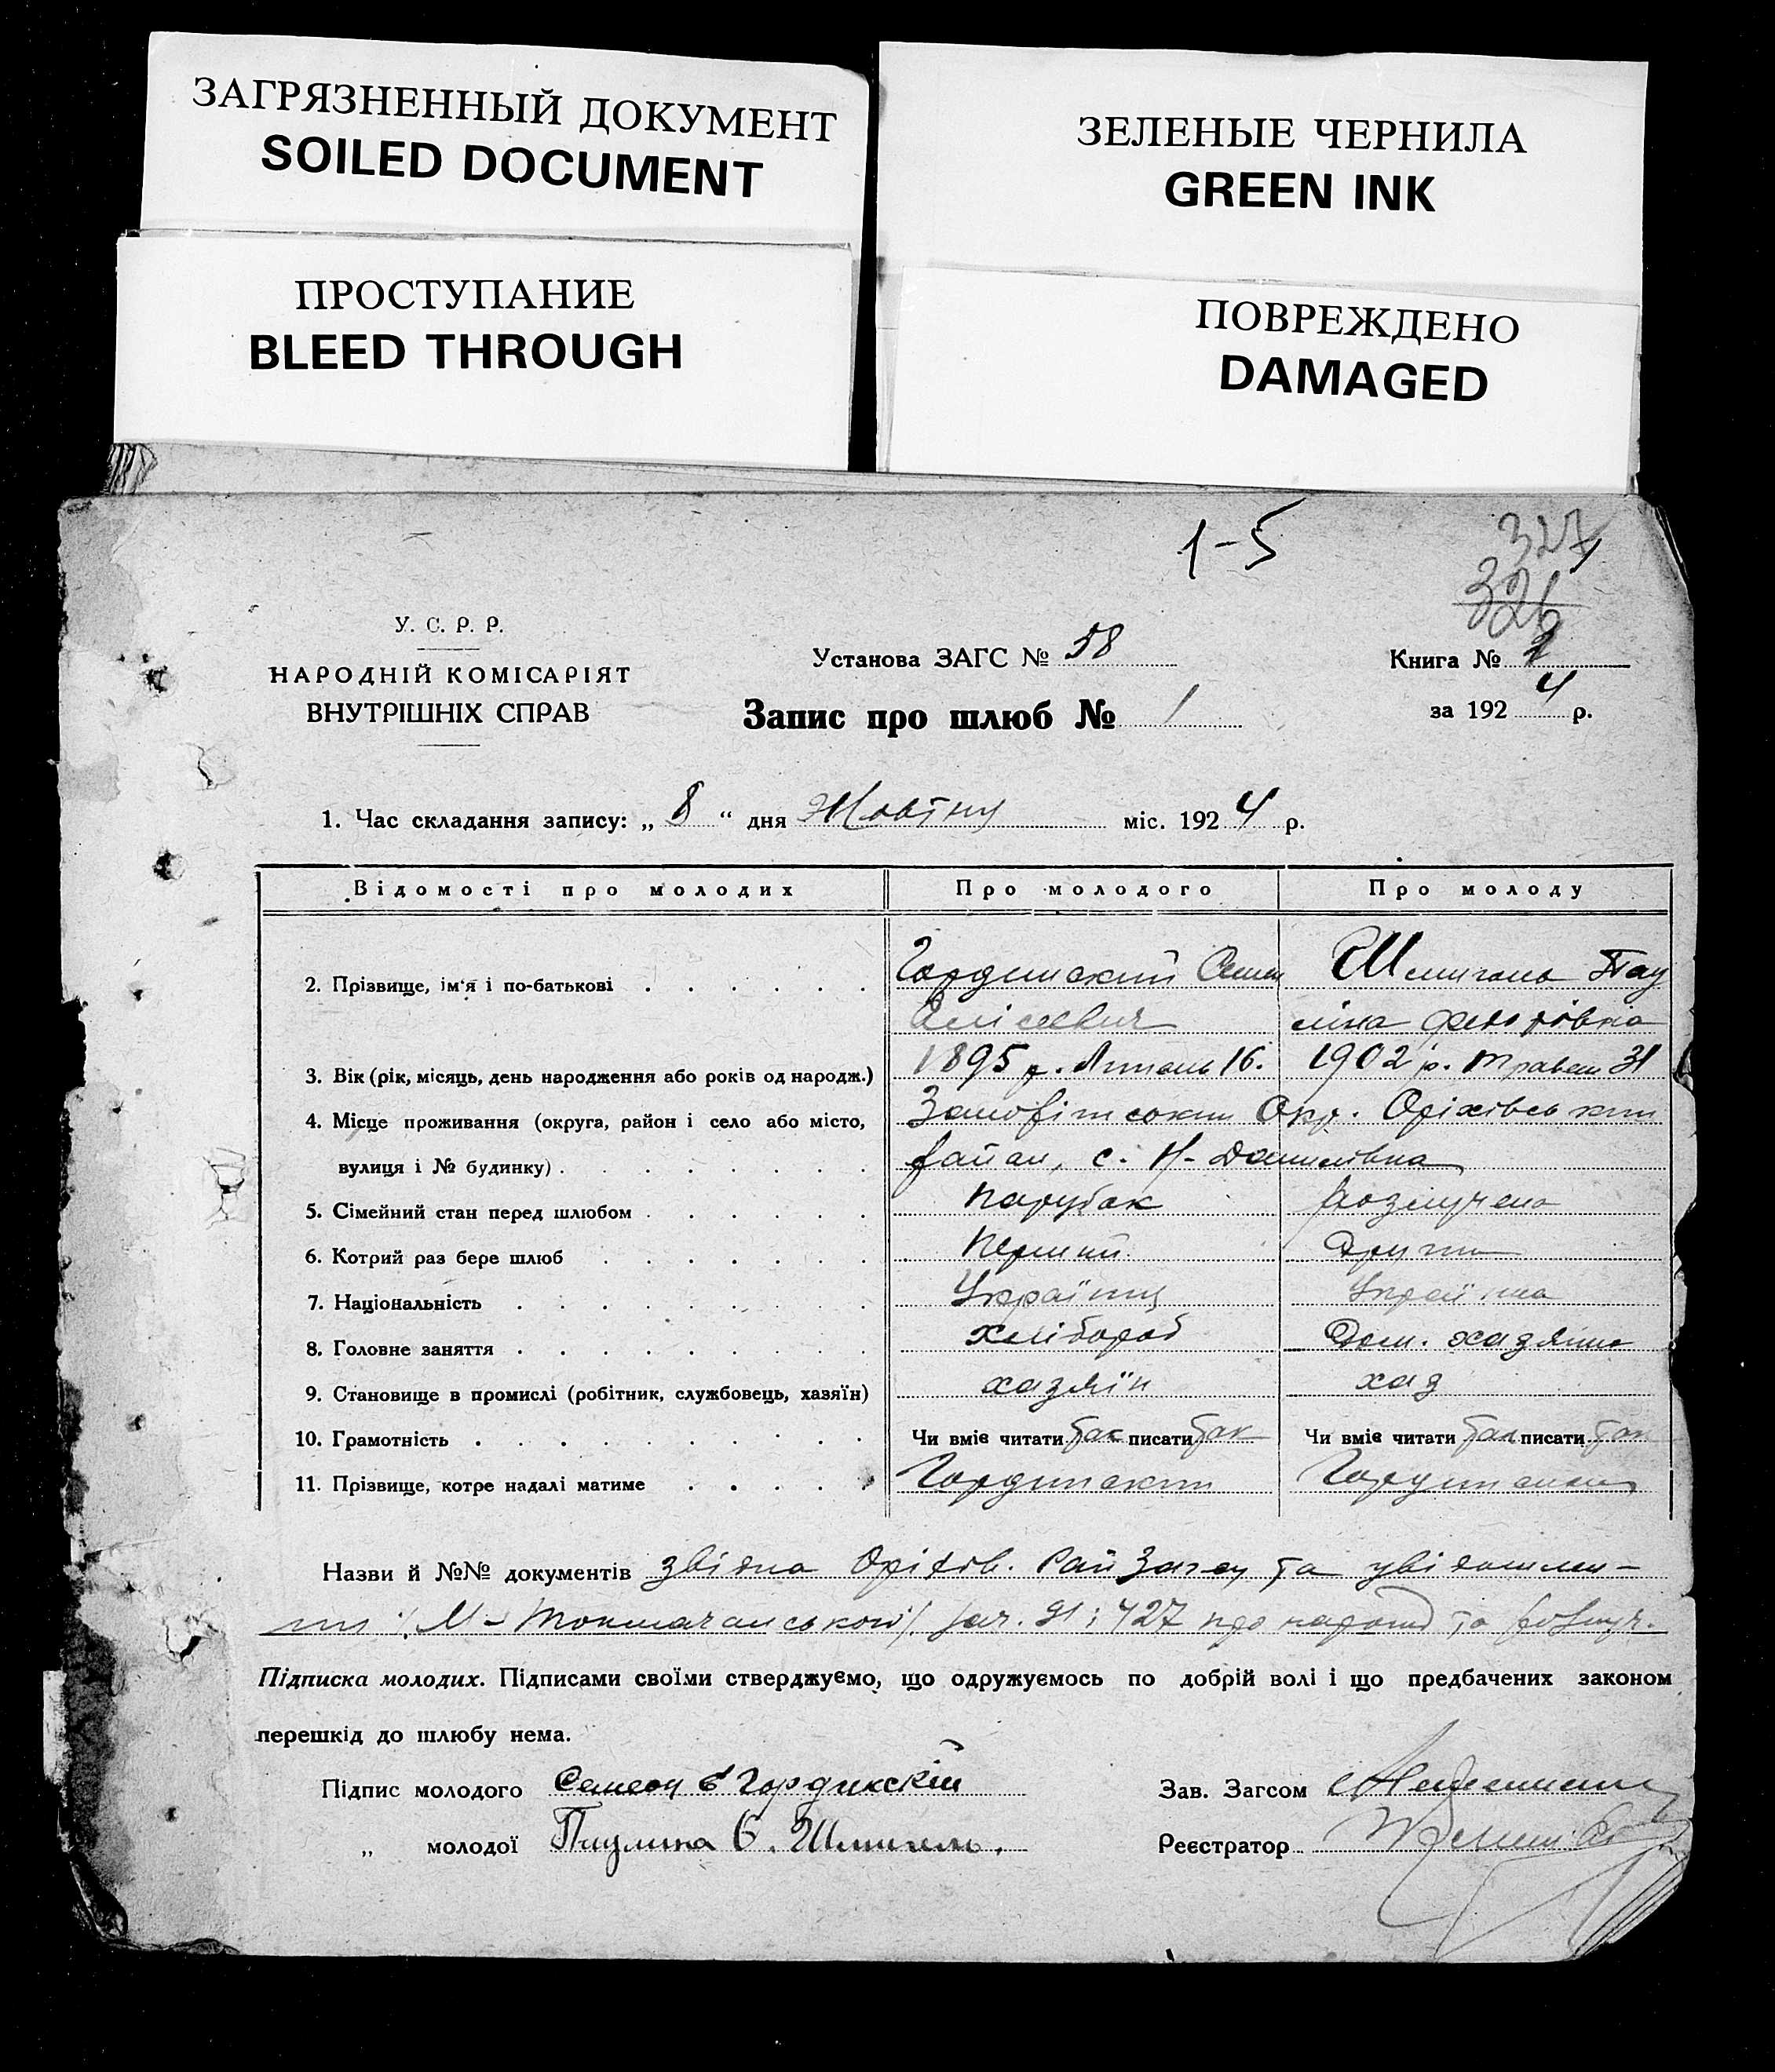 ЗАГРЯЗНЕННЫЙ ДОКУМЕНТ
SOILED DOCUMENT
ЗЕЛЕНЫЕ ЧЕРНИЛА
GREEN INK
ПРОСТУПАНИЕ
BLEED THROUGH
ПОВРЕЖДЕНО
DAMAGED
1-5
327
326
У. С. Р. Р.
НАРОДНІЙ КОМІСАРІЯТ
ВНУТРІШНІХ СПРАВ
Установа ЗАГС № 58
Запис про шлюб № 1
Книга №
за 1924 р.
1. Час складання запису: „ 8 “ дня Жовтня міс. 1924 р.
Відомості про молодих Про молодого Про молоду
2. Прізвище, ім'я і по-батькові Гординский Семен Шмигель Пау
ліна Федорівна
3. Вік (рік, місяць, день народження або років од народж.) 1895 р. Липень 16. 1902 р. Травень 31
4. Місце проживання (округа, район і село або місто, Окр. Оріхівський
вулиця і № будинку) район, с. Н-Данилівка
5. Сімейний стан перед шлюбом парубак розлучена
6. Котрий раз бере шлюб перший другий
7. Національність Українц Українка
8. Головне заняття хлібороб Дом. хазяйка
9. Становище в промислі (робітник, службовець, хазяїн) хазяїн хаз
10. Грамотність Чи вміє читати так писати так Чи вміє читати так писати так
11. Прізвище, котре надалі матиме Гординский Гординская
Назви й №№ документів звідка Оріхів. РайЗагсу та увідомлен-
ня М-Токмачанського 91 і 427 про народ та розлуч.
Підписка молодих. Підписами своїми стверджуємо, що одружуємось по добрій волі і що предбачених законом
перешкід до шлюбу нема.
Підпис молодого Семен Е Гординскій
Зав. Загсом
„ молодої Паулина Ѳ. Шмигель.
Реєстратор